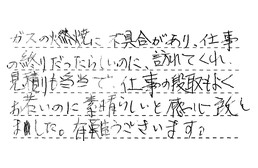 ガスの燃焼に不具合があり、仕事
の終りだったらしいのに、訪れてくれ
見積りも当日で、仕事の段取もよく
お若いのに素晴らしいと感心致し
ました。有難うございます。